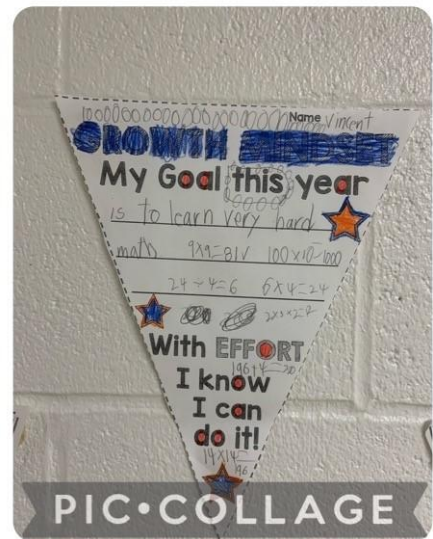 Name Vincent
GROWTH
My Goal this year
is to learn very hard
math 9x9=81 100x10=1000
24÷4=6 6x4=24
With EFFORT
196+4=200
I know
I can
do it!
14x14=
196
PIC•COLLAGE